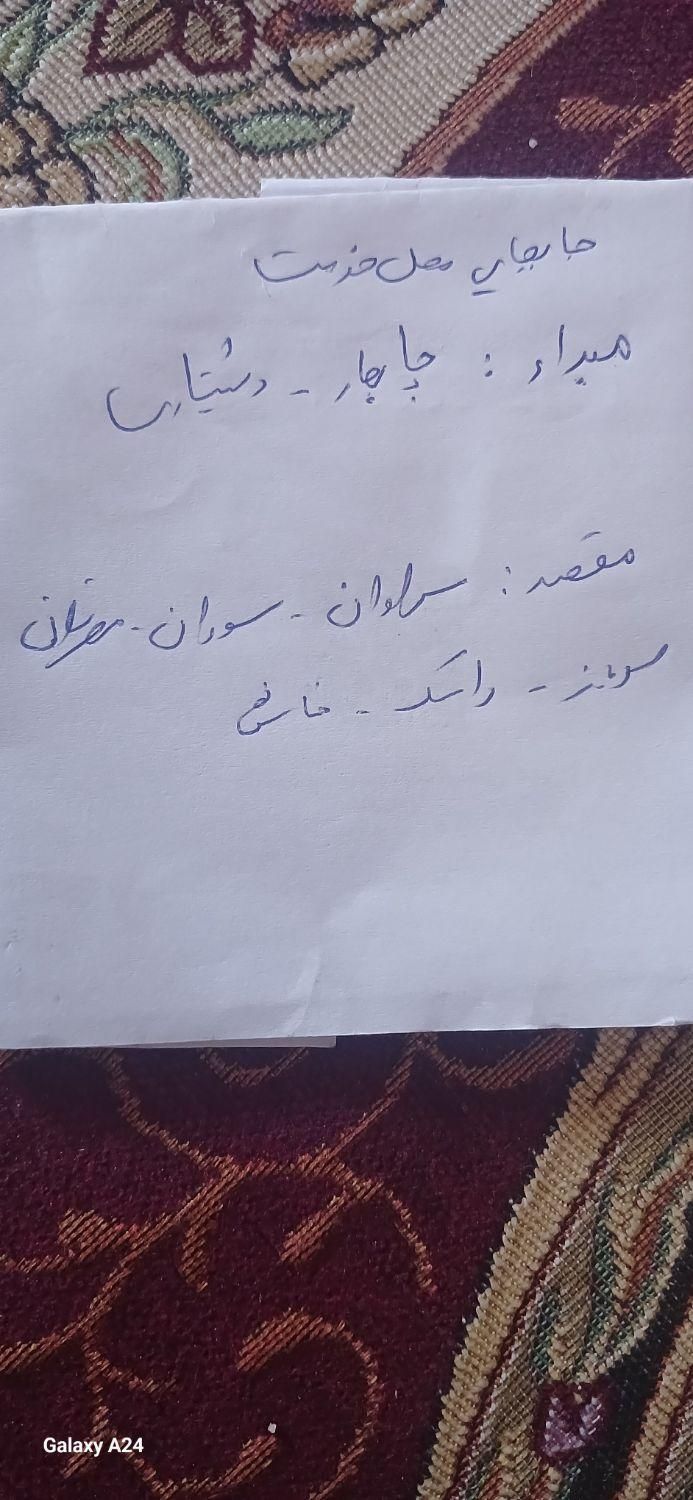 جابجایی محل خدمت
مبداء : چابهار - دشتیاری
مقصد : سراوان - سوران - مهرستان
سرباز - راسک -
Galaxy A24